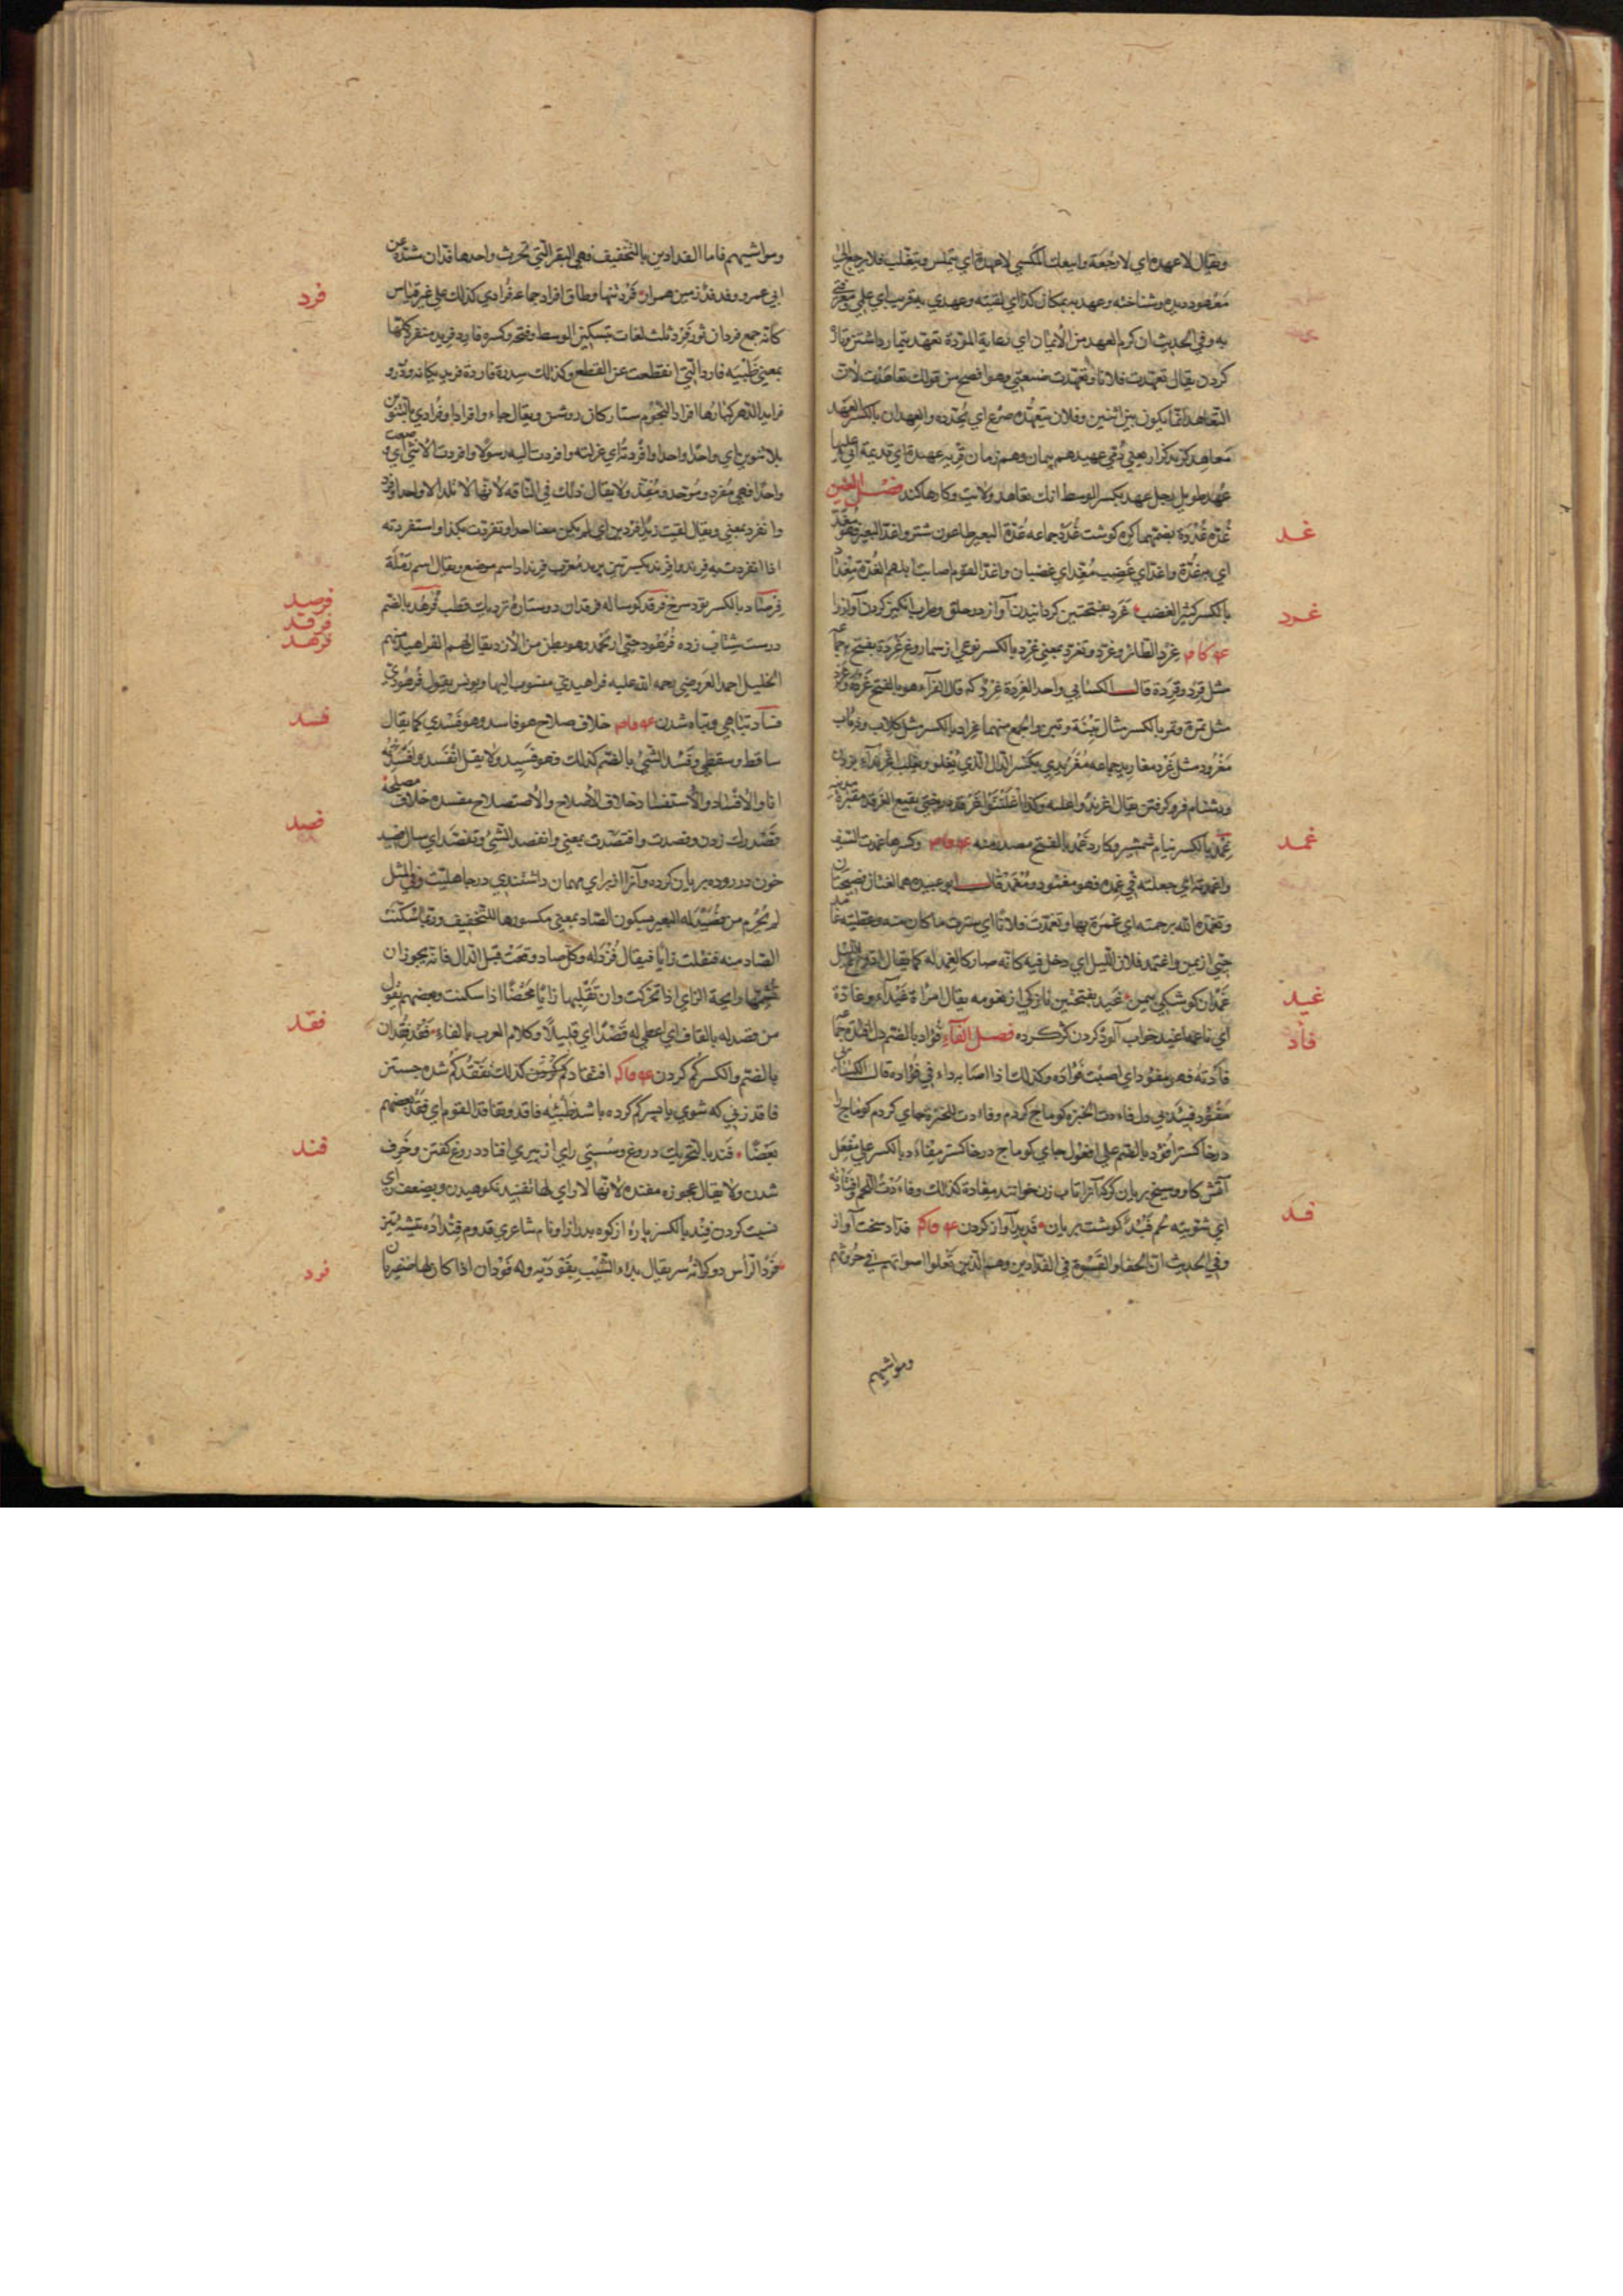 ويقال لا عهدة اي لا رجعة وابيعك الملسى لا عهدة اي يتملس ويتفلت فلا يرجع الي
معهود ديده وشناخته وعهد به بمكان كذا اي لقيته وعهدي به قريب اي على معرفتي
به وفي الحديث ان كرم العهد من الايمان اي رعاية المودة تعهد تيمار داشتن وتازه
كردن يقال تعهدت فلانا وتعهدت ضيعتي وهو افصح من قولك تعاهدت لان
التعاهد انما يكون بين اثنين وفلان يتعهده صرع اي يجدده والعهدان بالكسر العهد
معاهد كزيد كزار يعني ذمي عهيد هم پيمان وهم زمان قرية عهيدة اي قديمة اتي عليها
عهد طويل رجل عهد بكسر الوسط انك تعاهد ولايت وكارها كند فصل الغين
غد
غدة غددة بضمهما كره كوشت غدد جماعه غدة البعير طاعون شتر واغد البعير فهو مغد
اي به غدة واغد اي غضب مغد اي غضبان واغد القوم اصابت ابلهم الغدة مغداد
غرد
بالكسر كثير الغضب غرد بفتحتين كردانيدن آواز در حلق وطرب انكيز كردن آواز را
ع ف ك م غرد الطائر وغرد وتغرد بمعني غرد بالكسر نوعي از سماروغ غردة بفتح جماعه
مثل قرد وقردة قال الكسائي واحد الغردة غرد كه قال الفراء هو بالفتح غردة وغرد
مثل تمرة وتمر بالكسر مثال تينة وتين والجمع منهما غراد بالكسر مثل كلاب وذئاب
مغرود مثل غرد مغاريد جماعه مغرندي بكسر الدال الذي يغلو ويغلب اغرنداء بزدن
ودشنام فرو كرفتن يقال اغرندوا عليه وكذا اغلنتوا غرقد درختي بقيع الغرقد مقبرة مدينه
غمد
غمد بالكسر نيام شمشير وكارد غمد بالفتح مصدر منه ع ف م وكسرها غمدت السيف
واغمدته اي جعلته في غمده فهو مغمود ومغمد قال ابو عبيده هما لغتان فصيحتان
وتغمده الله برحمته اي غمره بها وتغمدت فلانا اي سترت ما كان منه وغطيته غامد
حيي از يمن واغتمد فلان الليل اي دخل فيه كانه صار كالغمد له كما يقال ادرع الليل
غيد
غمدان كوشكي بيمن غيد بفتحتين نازكي از نعومه يقال امراة غيداء وغادة
فأد
اي ناعمه اغيد خواب آلود كردن كژ كرده فصل الفاء فؤاد بالضم دل افئدة جماعه
فأدته فهو مفؤد اي اصبت فؤاده وكذلك اذا اصابه داء في فؤاده قال الكسائي
مفؤود فئيد بي دل فاءدت الخبزة كوماج كردم وفاءدت للخبزة جاي كردم كوماج را
در خاكستر افؤد بالضم على افعول جاي كوماج در خاكستر مفأد بالكسر على مفعل
آتش كاو وسيخ بريان كردن كه آنرا تاب زن خوانند مفآدة كذلك وفاءدت اللحم وافتأدته
فد
اي شويته لحم فئيد كوشت بريان فديد آواز كردن ع ف ك م فداد سخت آواز
وفي الحديث ان الجفاء والقسوة في الفدادين وهم الذين تعلو اصواتهم في حروثهم
ومواشيهم
ومواشيهم فاما الفدادين بالتخفيف فهي البقر التي تحرث واحدها فدان مشددة عن
فرد
ابي عمرو وفدفد زمين هموار فرد تنها وطاق افراد جماعه فرادى كذلك على غير قياس
كانه جمع فردان ثور فرد ثلث لغات بتسكين الوسط وفتحه وكسره فارد فريد منفرد كلها
بمعني ظبية فارد التي انقطعت عن القطيع وكذلك سدرة فاردة فريد يكانه ودر و
فرايد الدهر كبارها افراد النجوم ستاركان روشن ويقال جاءوا فرادا وفرادى بالتنوين
بلا تنوين اي واحدا واحدا وافردته اي عزلته وافردت اليه رسولا وافردت الانثى اي وضعت
واحدا فهي مفرد وموحد ومفذ ولا يقال ذلك في الناقة لانها لا تلد الا واحدا وفرد
وانفرد بمعني ويقال لقيت زيدا فردين اي لم يكن معنا احد وتفردت بكذا واستفردته
اذا انفردت به فرند وافرند بكسرتين برند معرب فرنداد اسم موضع ويقال اسم رملة
فرصد
فرقد
فرهد
فرصاد بالكسر تود سرخ فرقد كوساله فرقدان دو ستاره نزديك قطب فرهد بالضم
درست شتاب زده فرهود حيي از يحمد وهو بطن من الازد يقال لهم الفراهيد منهم
الخليل احمد العروضي رحمه الله عليه فراهيدي منسوب اليها ويونس يقول فرهودي
فسد
فساد تباهي وتباه شدن ع ف م خلاف صلاح هو فاسد وهو فسدي كما يقال
ساقط وسقطي وفسد الشئ بالضم كذلك فهو فسيد ولا يقل انفسد وافسدته
انا والافساد والاستفساد خلاف الاصلاح والاستصلاح مفسده خلاف مصلحة
فصد
فصد رك زدن وفصدت وافتصدت بمعني وانفصد الشئ وتفصد اي سال فصيد
خون در روده بريان كرده وآنرا از براي مهمان داشتندي در جاهليت وفي المثل
لم يحرم من فصيد له البعير بسكون الصاد بمعني مكسورها للتخفيف وربما سكنت
الصاد منه فنقلت زايا فيقال فزد له وكل صاد وقعت قبل الدال فانه يجوز ان
تشمها رايحة الزاي اذا تحركت وان تقلبها زايا محضا اذا سكنت وبعضهم يقول
فقد
من قصد له بالقاف اي اعطي له قصدا اي قليلا وكلام العرب بالفاء فقد فقدان
بالضم والكسر كم كردن ع ف ك م افتقاد كم كردن كذلك تفقد كم شده جستن
فاقد زني كه شوي يا پسر كم كرده باشد ظبية فاقد وتفاقد القوم اي فقد بعضهم
فند
بعضا فند بالتحريك دروغ وسستي راي از پيري افناد دروغ كفتن وخرف
شدن ولا يقال عجوز مفندة لانها لا راي لها تفنيد نكوهيدن وبضعف راي
نسبت كردن فند بالكسر پاره از كوه بدرازا ونام شاعري قدوم فنداوة تيشه تيز
فود
فودا الراس دو كرانه سر يقال بدا الشيب بفوديه وله فودان اذا كان لها ضفيرتان